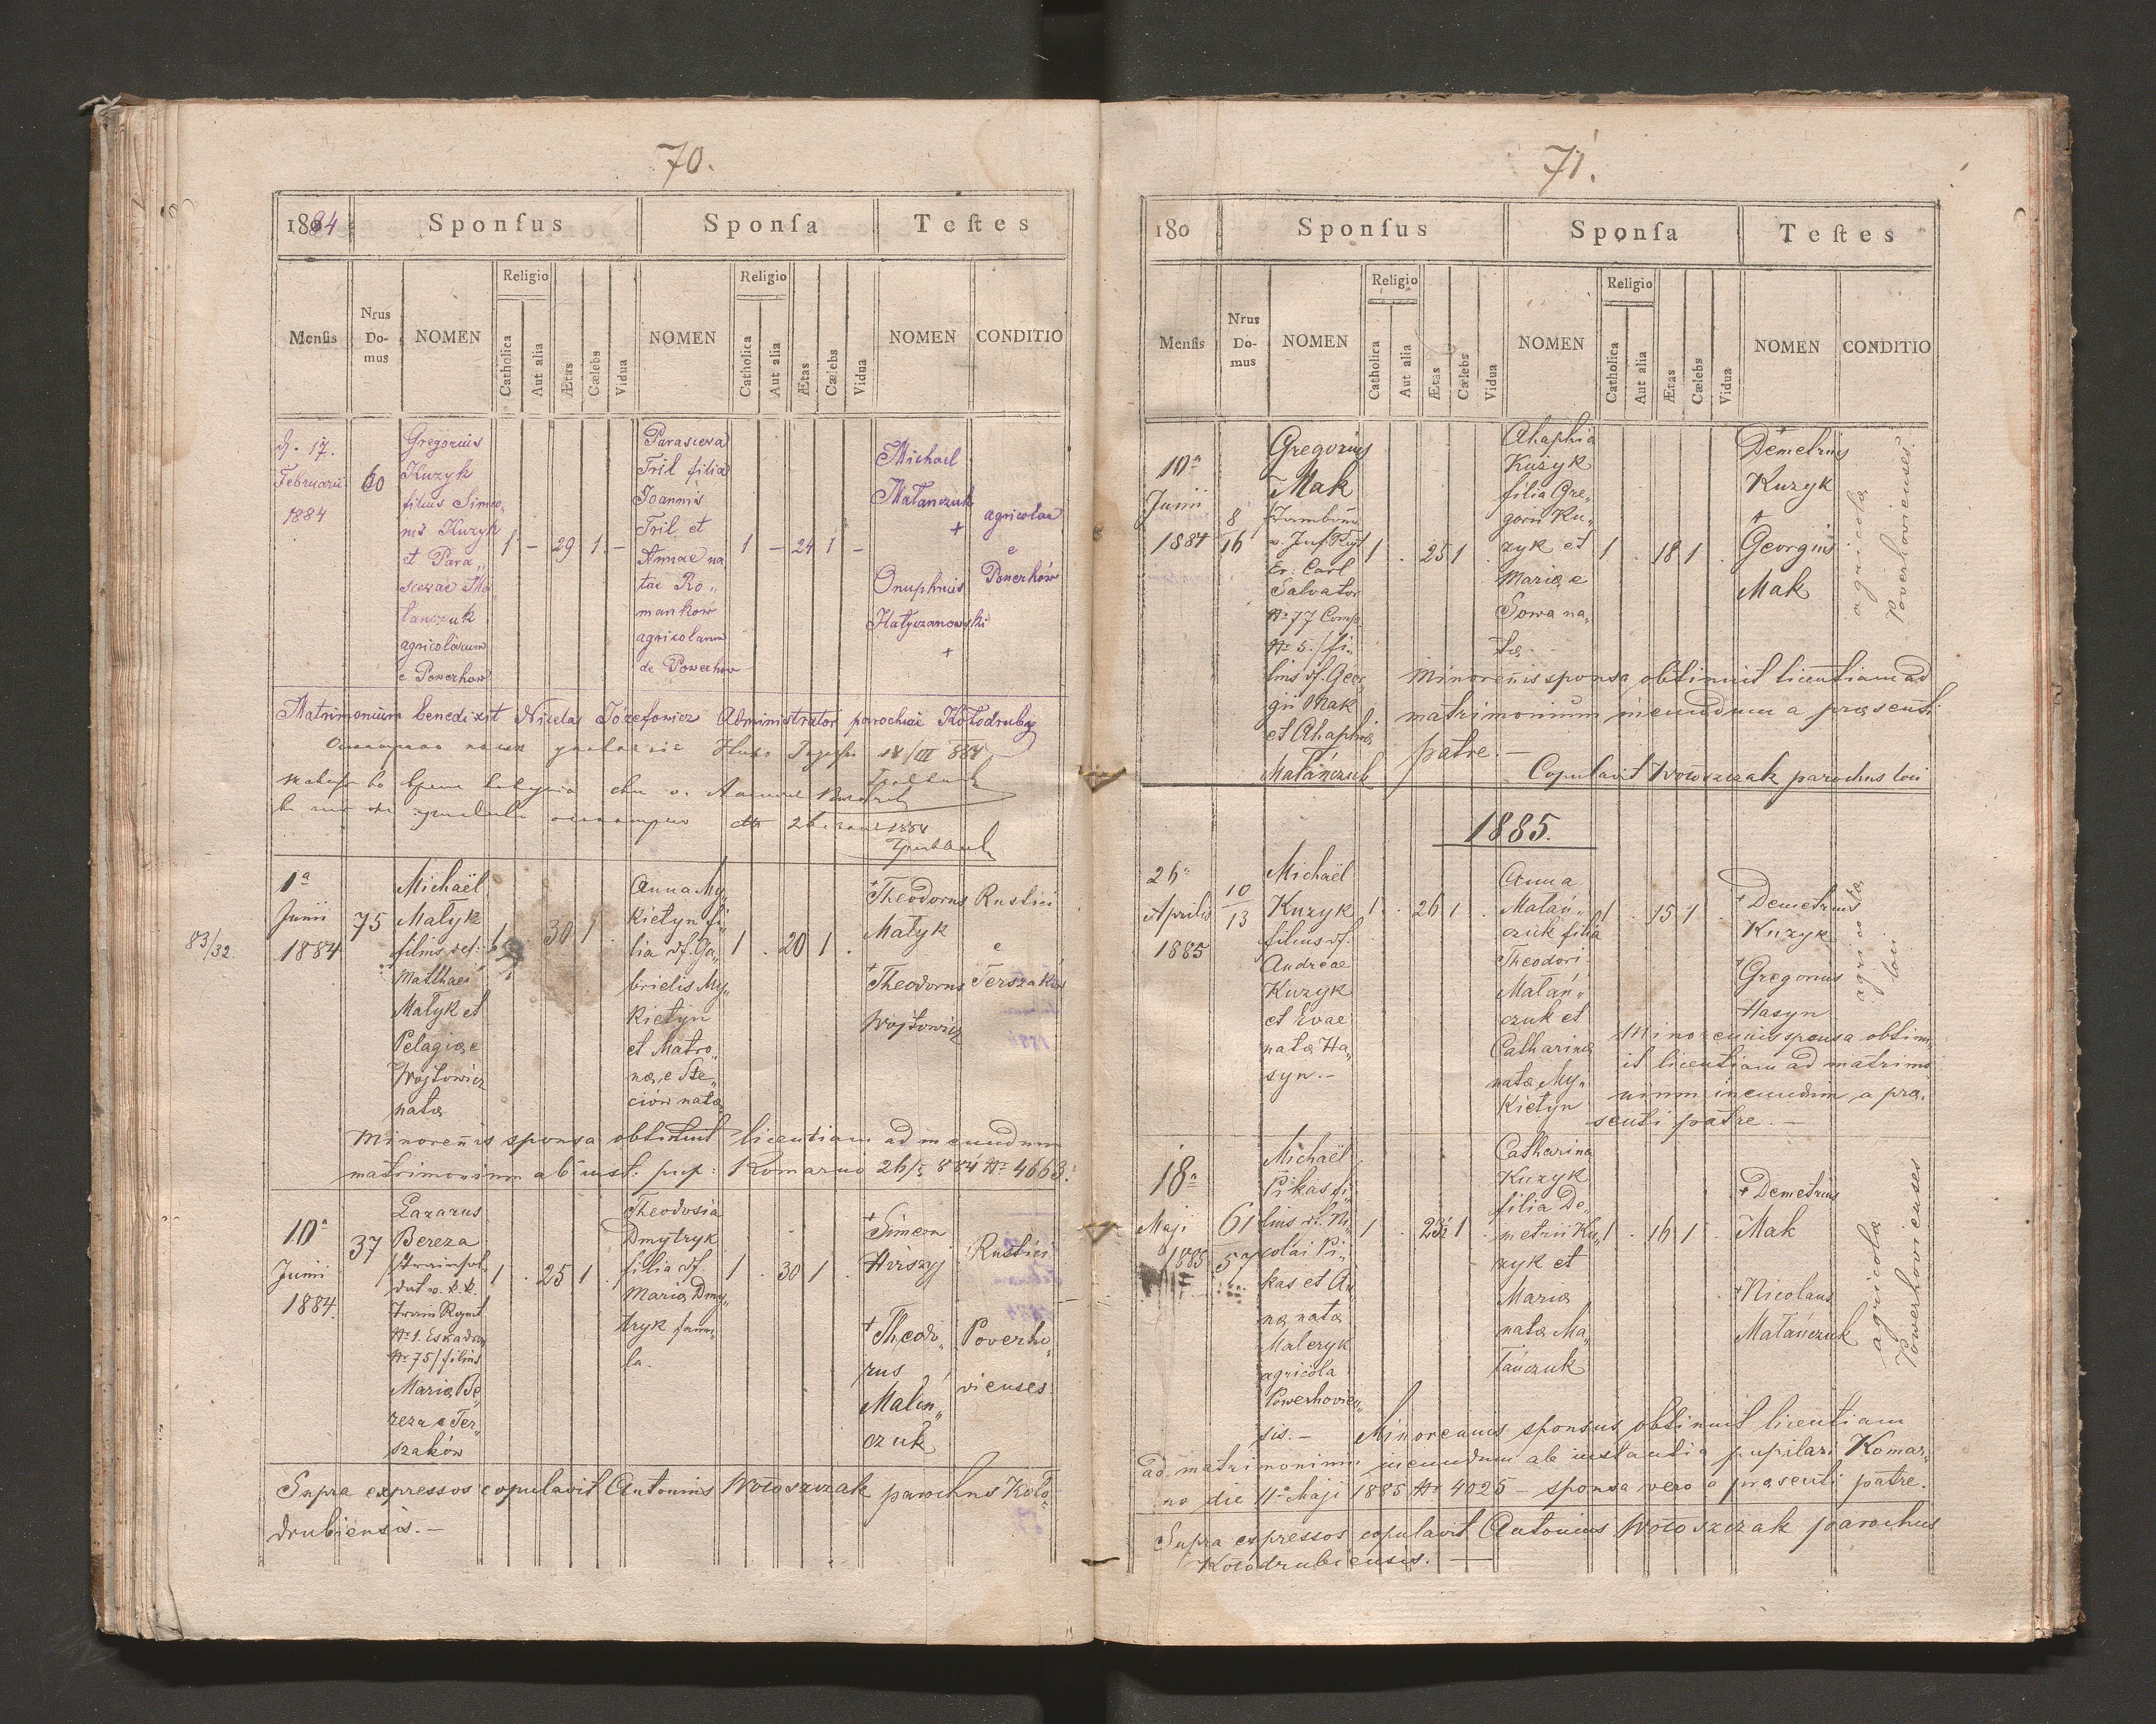 70.
1884 Sponsus Sponsa Testes
Mensis Nrus Do-mus NOMEN Religio Catholica Aut alia Ætas Cælebs Vidua NOMEN Religio Catholica Aut alia Ætas Cælebs Vidua NOMEN CONDITIO
d. 17.
Februarii
1884
60
Gregorius
Kuzyk
filius Simeo„
nis Kuzyk
et Para„
scevae Ma
lanczuk
agricolarum
e Powerhow
1 - 29 1. -
Parasceva
Tril filia
Joannis
Tril et
Annae na
tae Ro„
mankow
agricolarum
de Powerhow
1 - 24 1 -
Michael
Matanczuk
+
Onuphrius
Hatyczanowski
+
agricolae
e
Powerhów
Matrimonium benedixit Nicolas Józefowicz Administrator parochiae Kołodruby
18/III 884
26 1884
83/32.
1a
Junii
1884
75
Michaël
Matyk
filius def:
Matthaei
Matyk et
Pelagiæ e
Wojtowicz
natæ
1 30 1.
Anna My„
kietyn fi„
lia df. Ga„
brielis My„
kietyn
et Matro„
næ, e Ste„
ciów natæ
1 . 20 1 .
+Theodorus
Matyk
+Theodorus
Wojtowicz
Rustici
e
Terszaków
Minorenis sponsa obtinuit licentiam ad ineundum
matrimonium ab inst: pup: Komarno 26/5 884 No 4663.
10a
Junii
1884.
37
Lazarus
Bereza
/Trainsol„
dat v. k. k.
Train Rgmt
No 1. Eskadron
No 75/ filius
Mariæ Be„
reza e Ter„
szaków
1 . 25 1 .
Theodosia
Dmytryk
filia df.
Mariæ Dmy„
tryk famu„
la.
1 . 30 1 .
+Simeon
Hirszyj
+Theodo„
rus
Malen„
czuk
Rustici
Poverho„
vienses.
Supra expressos copulavit Antonius Wołoszczak parochus Koło„
drubiensis. —
71.
180 Sponsus Sponsa Testes
Mensis Nrus Do-mus NOMEN Religio Catholica Aut alia Ætas Cælebs Vidua NOMEN Religio Catholica Aut alia Ætas Cælebs Vidua NOMEN CONDITIO
10a
Junii
1884
8
16
Gregorius
Mak
/Tambour
v. Inf. Rgt
Er. Carl
Salvator
No 77 Comp
No 5./ fi„
lius df. Geor„
gii Mak
et Ahaphiæ
Matańczuk
1 . 25 1 .
Ahaphia
Kuzyk
filia Gre„
gorii Ku„
zyk et
Mariæ e
Sowa na„
tæ.
1 . 18 1 .
+
Demetrius
Kuzyk
+
Georgius
Mak
agricolæ
Poverhovienses.
Minorennis sponsa obtinuit licentiam ad
matrimonium ineundum a præsenti
patre. —
Copulavit Wołoszczak parochus loci
1885.
26a
Aprilis
1885
10
13
Michaël
Kuzyk
filius df.
Andreae
Kuzyk
et Evae
natæ Ha„
syn. —
1 . 26 1 .
Anna
Matań„
czuk filia
Theodori
Matań„
czuk et
Catharinæ
natæ My„
kietyn
1 . 15 1 .
+Demetrius
Kuzyk
+Gregorius
Hasyn
agricolæ
loci
Minorennis sponsa obtinu„
it licentiam ad matrimo
nium ineundum a præ„
senti patre. —
18a
Maji
1885
61
57
Michaël
Pikas fi„
lius df. Ni„
colai Pi„
kas et An„
næ natæ
Maleryk
agricola
Powerhovien„
sis. —
1 . 23½ 1 .
Catharina
Kuzyk
filia De„
metrii Ku„
zyk et
Mariæ
natæ Ma„
tańczuk
1 . 16 1 .
+Demetrius
Mak
+Nicolaus
Matańczuk
agricolæ
Powerhovienses
Minorennis sponsus obtinuit licentiam
ad matrimonium ineundum ab instantia pupilari Komar„
no die 11a Maji 1885 No 4025 — sponsa vero a præsenti patre.
Supra expressos copulavit Antonius Wołoszczak parochus
Kołodrubiensis. —